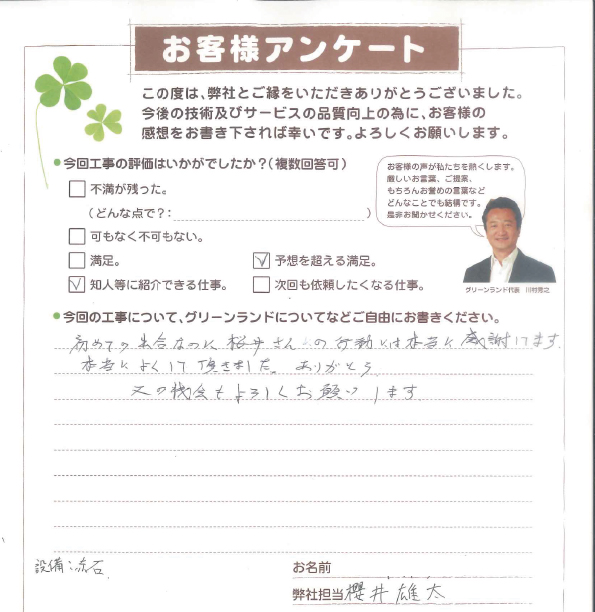 お客様アンケート
この度は、弊社とご縁をいただきありがとうございました。
今後の技術及びサービスの品質向上の為に、お客様の
感想をお書き下されば幸いです。よろしくお願いします。
今回工事の評価はいかがでしたか？（複数回答可）
不満が残った。
（どんな点で？： ）
可もなく不可もない。
満足。
予想を超える満足。
知人等に紹介できる仕事。
次回も依頼したくなる仕事。
お客様の声が私たちを熱くします。
厳しいお言葉、ご提案、
もちろんお誉めの言葉など
どんなことでも結構です。
是非お聞かせください。
グリーンランド代表 川村晃之
今回の工事について、グリーンランドについてなどご自由にお書きください。
初めての出合なのに桜井さんの行動には本当に感謝してます
本当によくして頂きました。ありがとう
又の機会もよろしくお願いします
設備:赤石
お名前
弊社担当 櫻井雄太